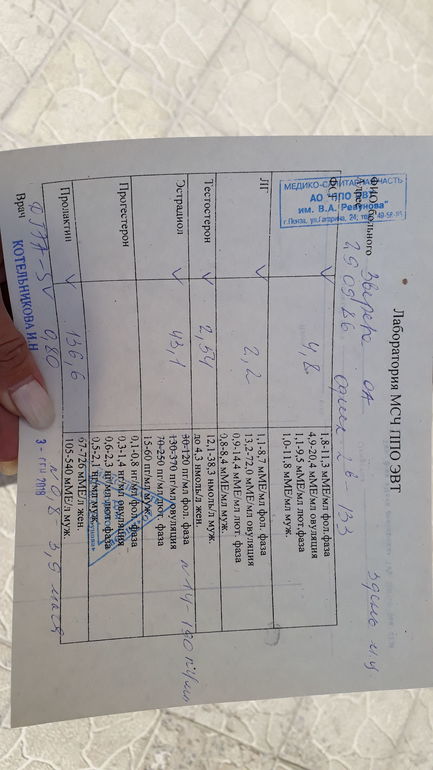 Лаборатория МСЧ ППО ЭВТ
ФИО больного
Адрес
29.09.86
МЕДИКО-САНИТАРНАЯ ЧАСТЬ
АО "ППО ЭВТ
им. В.А. Ревунова"
г.Пенза, ул.Гагарина, 24;
ФСГ 4,8 1,8-11,3 мМЕ/мл фол.фаза
4,9-20,4 мМЕ/мл овуляция
1,1-9,5 мМЕ/мл лют.фаза
1,0-11,8 мМЕ/мл муж.
ЛГ 2,2 1,1-8,7 мМЕ/мл фол. фаза
13,2-72,0 мМЕ/мл овуляция
0,9-14,4 мМЕ/мл лют. фаза
0,8-8,4 мМЕ/мл муж.
Тестостерон 2,54 12,1-38,3 нмоль/л муж.
до 4,3 нмоль/л жен.
Эстрадиол 43,1 30-120 пг/мл фол. фаза
130-370 пг/мл овуляция
70-250 пг/мл лют. фаза
15-60 пг/мл муж.
Прогестерон 0,1-0,8 нг/мл фол. фаза
0,3-1,4 нг/мл овуляция
0,6-2,3 нг/мл лют.фаза
0,5-2,1 нг/мл муж.
Пролактин 136,6 67-726 мМЕ/л жен.
105-540 мМЕ/л муж.
Врач
КОТЕЛЬНИКОВА И.Н
0,80